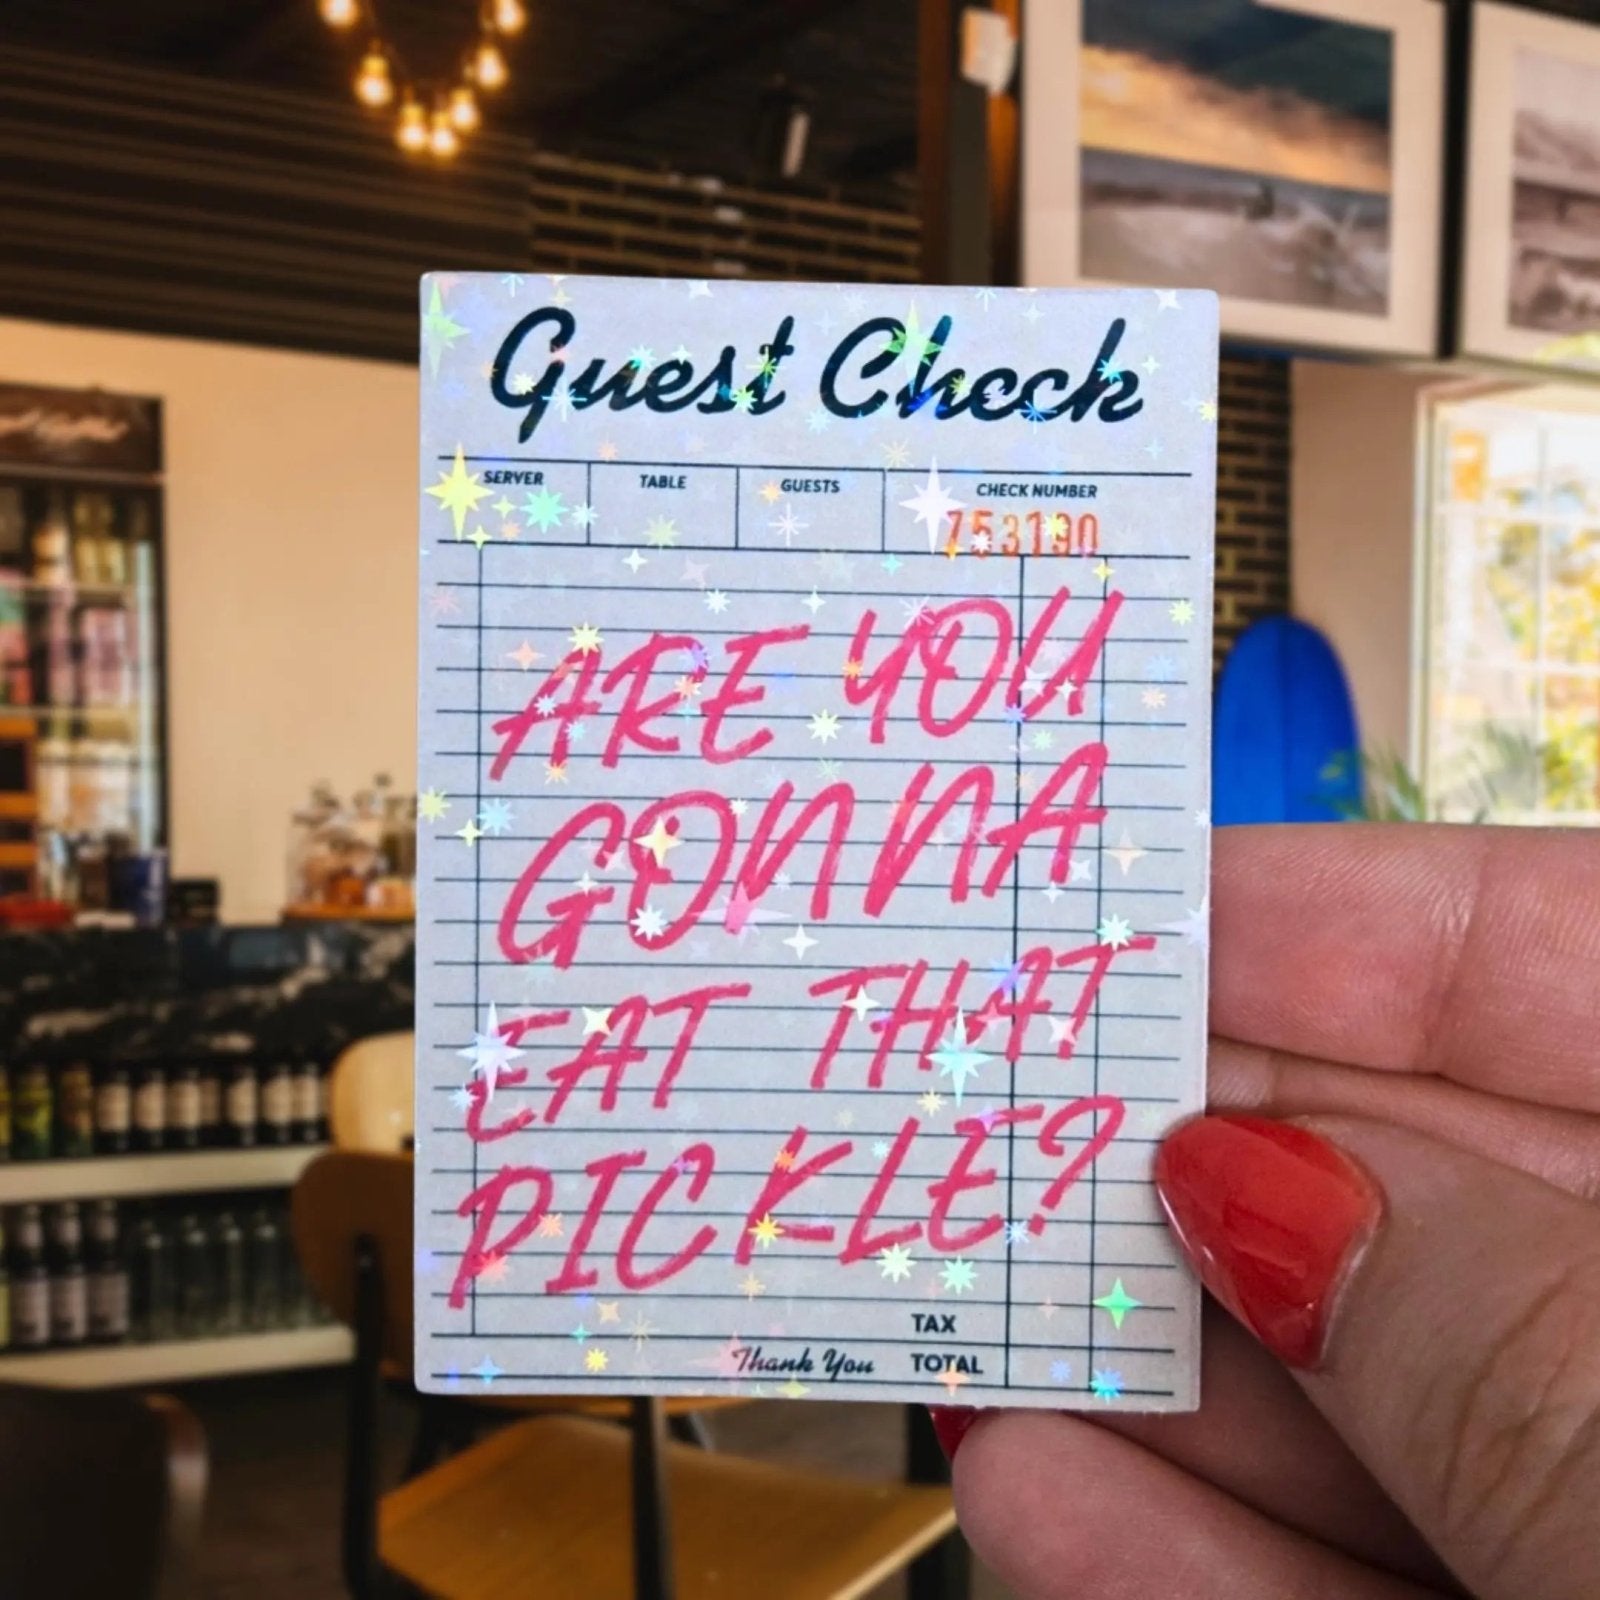 Guest Check
SERVER TABLE GUESTS CHECK NUMBER
753190
ARE YOU
GONNA
EAT THAT
PICKLE?
TAX
Thank You TOTAL